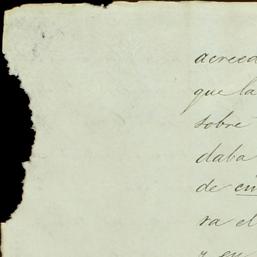 acreed
que la
sobre
daba
de cin
ra el
y en